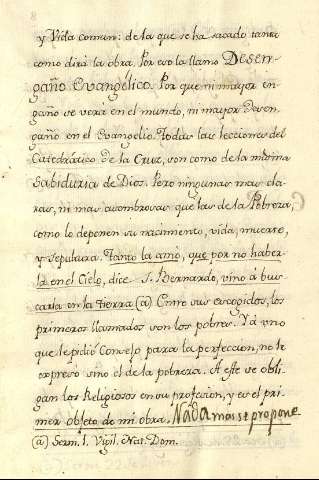 y Vida comun: de la que se ha sacado tanto
como dirá la obra. Por eso la llamo Desen-
gaño Evangélico. Por que ni mayor en-
gaño se verá en el mundo, ni mayor desen-
gaño en el Evangelio. Todas las lecciones del
Catedrático de la Cruz, son como de la misma
Sabiduria de Dios. Pero ningunas mas cla-
ras, ni mas asombrosas que las de la Pobreza,
como lo deponen su nacimiento, vida, muerte,
y sepultura. Tanto la amó, que por no haber-
la en el Cielo, dice S. Bernardo, vino á bus-
carla en la tierra (a) Entre sus escogidos, los
primeros llamados son los pobres. Yá uno
que le pidió Consejo para la perfeccion, no le
expresó sino el de la pobreza. A este se obli-
gan los Religiosos en su profesion, y es el pri-
mer objeto de mi obra, Nada mas se propone
(a) Serm. 1. Vigil. Nat. Dom.